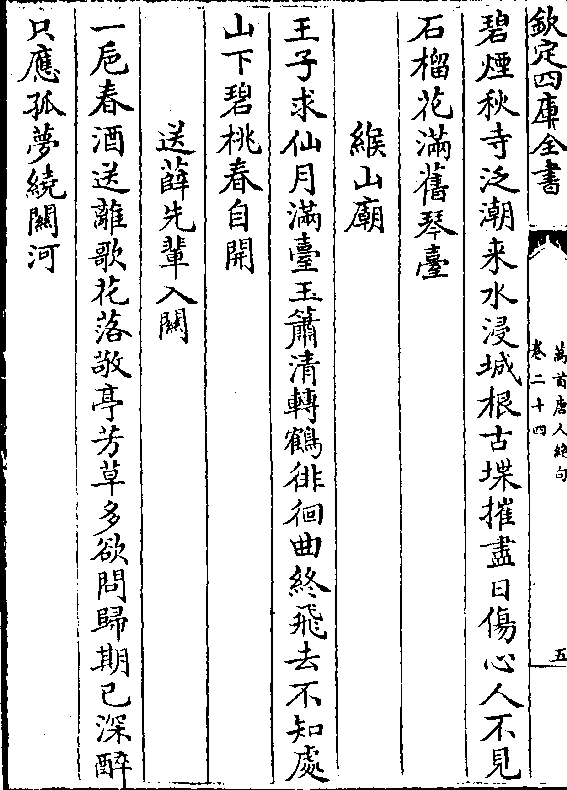 欽定四庫全書
萬首唐人絶句
卷二十四
五
碧煙秋寺泛潮来水浸城根古堞摧盡日傷心人不見
石榴花滿舊琴臺
緱山廟
王子求仙月滿臺玉簫清轉鶴徘徊曲終飛去不知處
山下碧桃春自開
送薛先輩入關
一巵春酒送離歌花落敬亭芳草多欲問歸期已深醉
只應孤夢繞關河